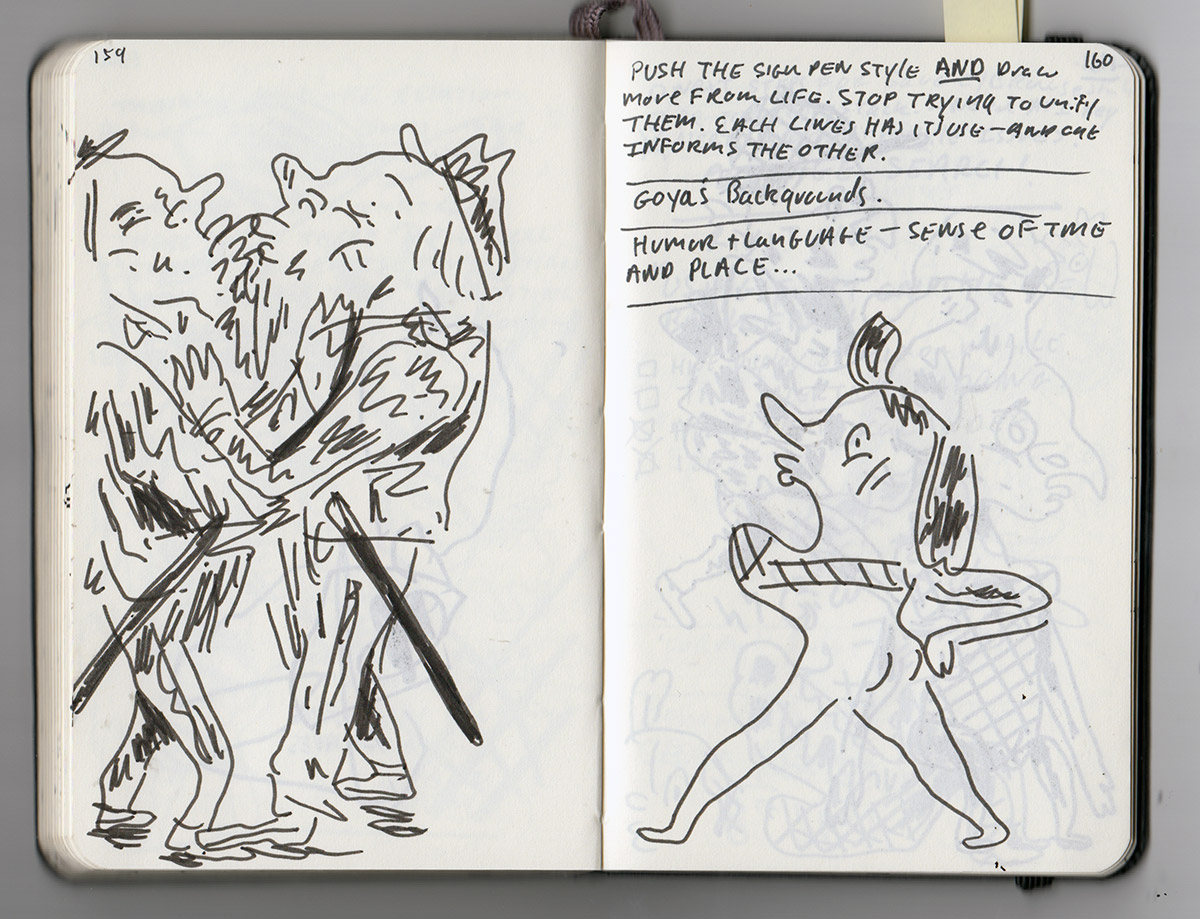 159
160
PUSH THE SIGN PEN STYLE AND Draw
more FROM LIFE. STOP TRYING TO UNIFY
THEM. EACH LINES HAS ITS USE — AND ONE
INFORMS THE OTHER.
GOYA'S Backgrounds.
HUMOR + LANGUAGE — SENSE OF TIME
AND PLACE...